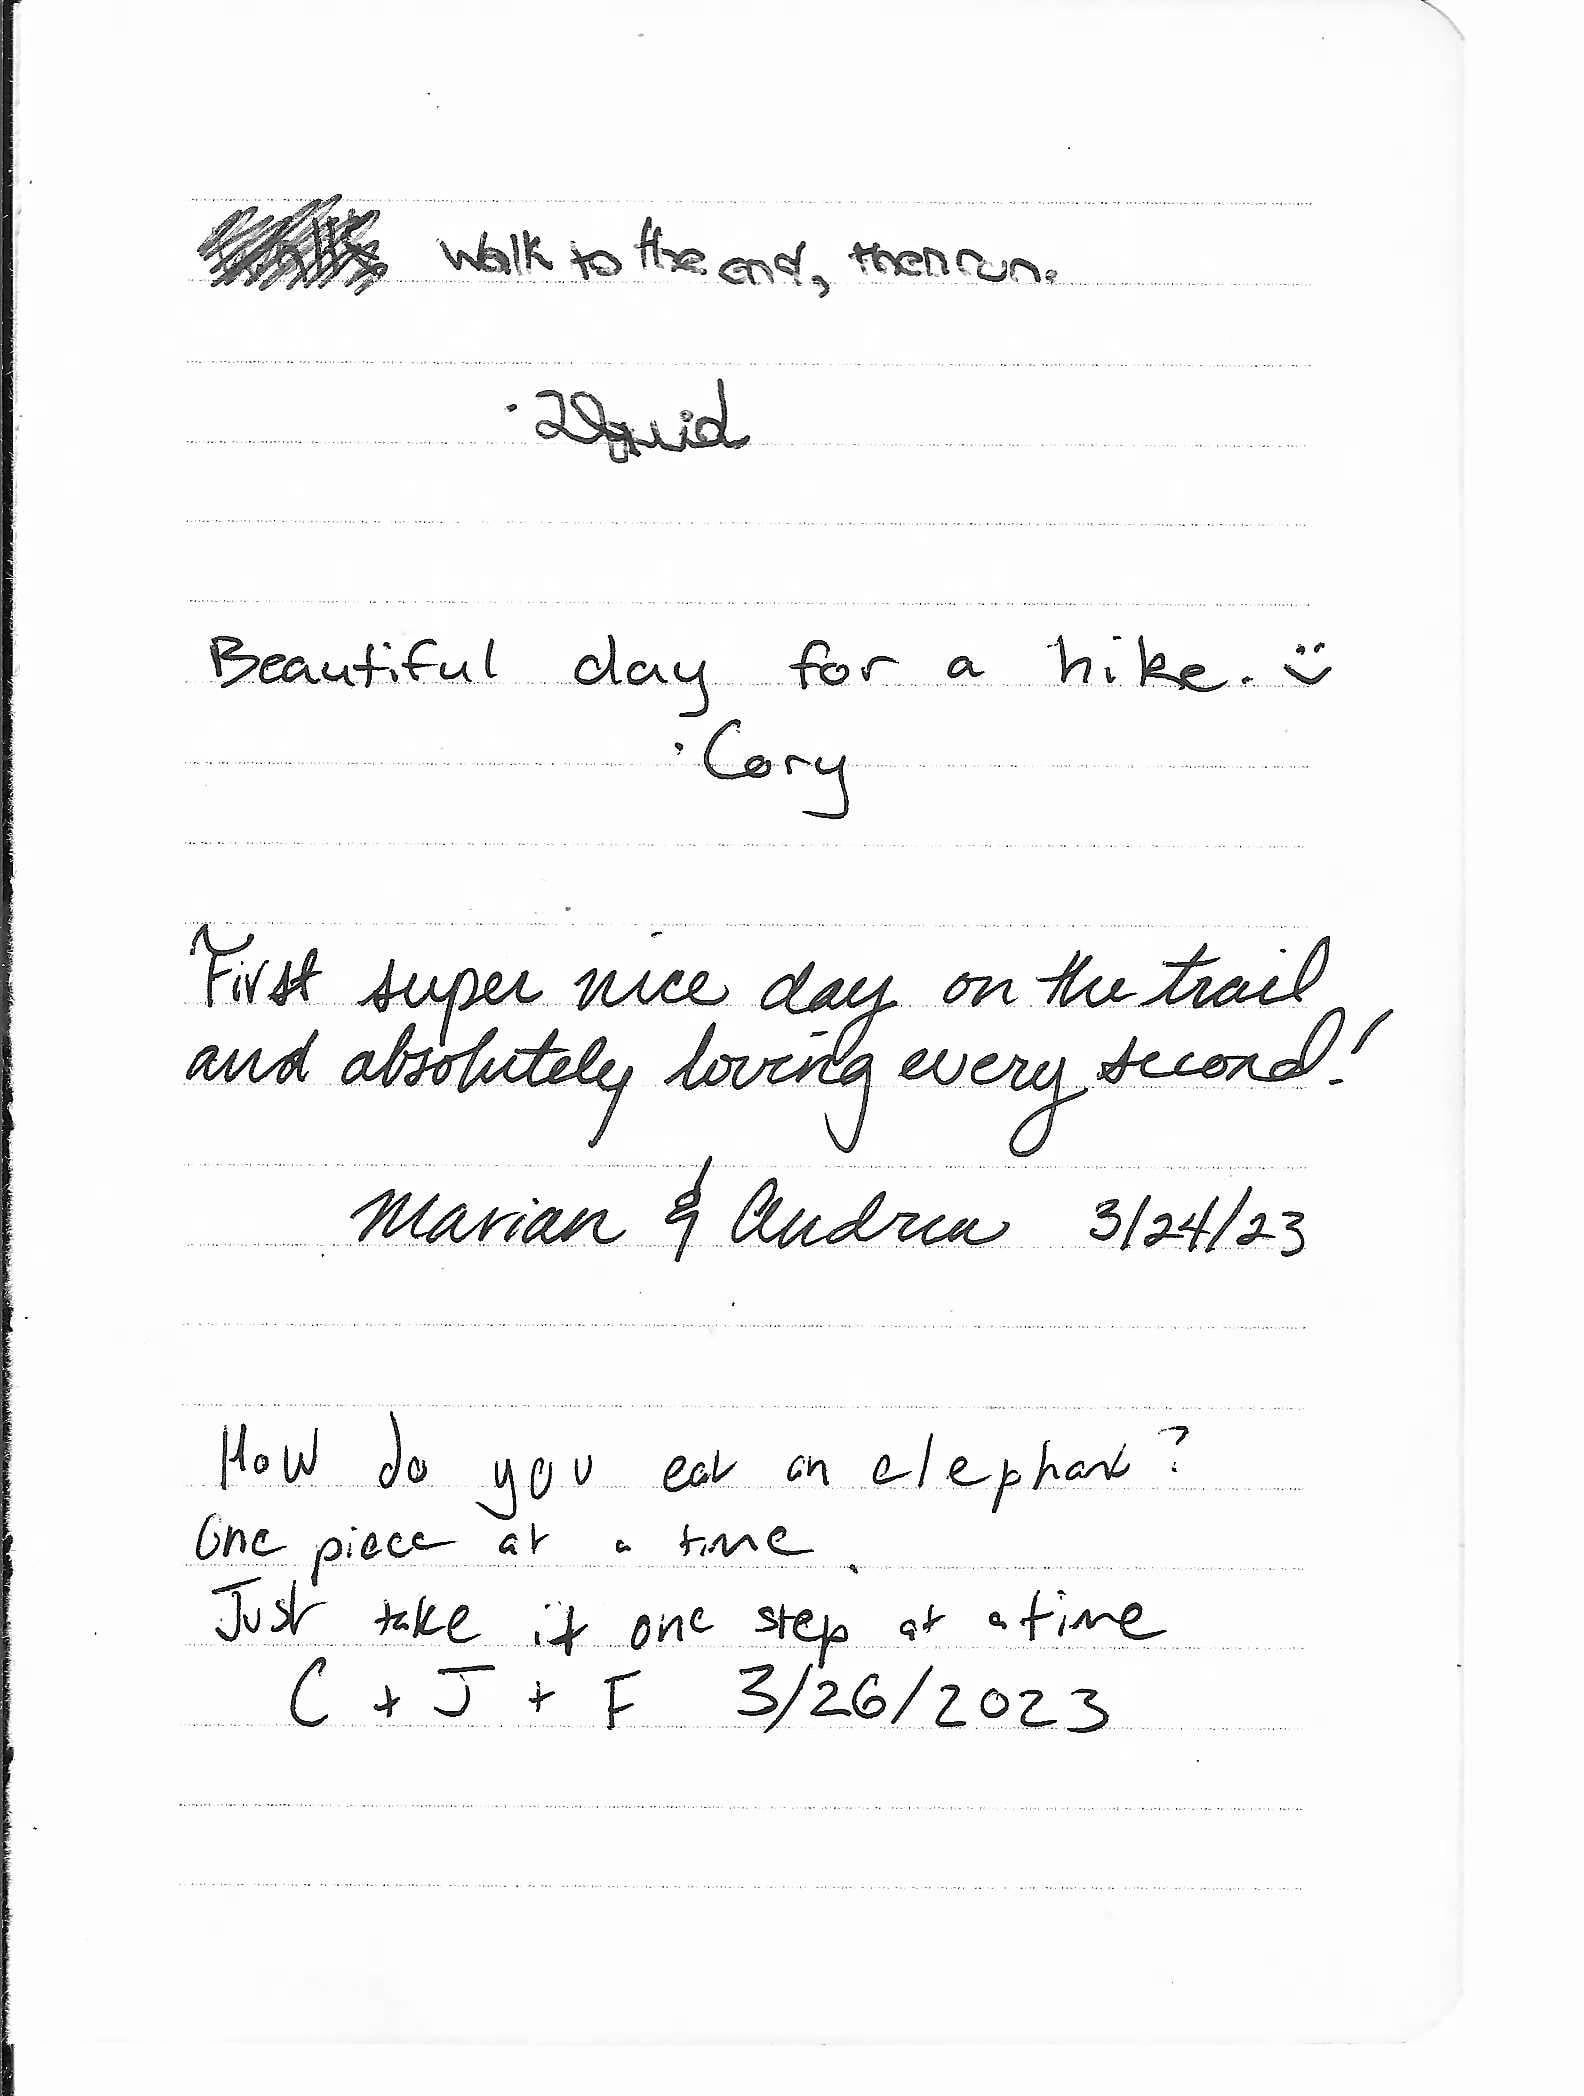 Walk to the end, then run.
Beautiful day for a hike. :)
· Cory
First super nice day on the trail
and absolutely loving every second!
Marian & Andrea 3/24/23
How do you eat an elephant?
One piece at a time.
Just take it one step at a time
C + J + F 3/26/2023